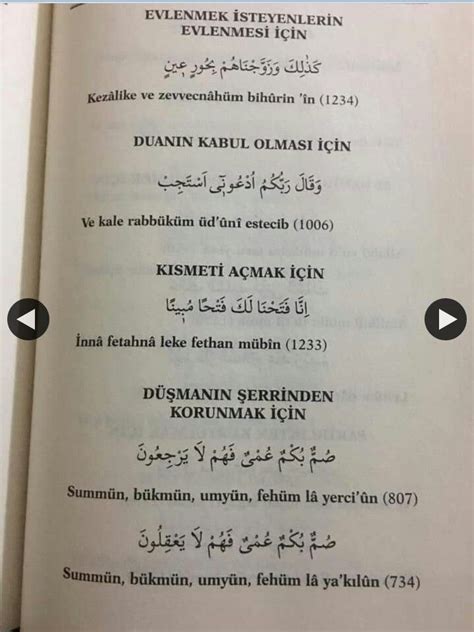 EVLENMEK İSTEYENLERİN
EVLENMESİ İÇİN
كَذٰلِكَ وَزَوَّجْنَاهُمْ بِحُورٍ عٖينٍ
Kezâlike ve zevvecnâhüm bihûrin 'în (1234)
DUANIN KABUL OLMASI İÇİN
وَقَالَ رَبُّكُمُ ادْعُونٖٓى اَسْتَجِبْ
Ve kale rabbüküm üd'ûnî estecib (1006)
KISMETİ AÇMAK İÇİN
اِنَّا فَتَحْنَا لَكَ فَتْحًا مُبٖينًا
İnnâ fetahnâ leke fethan mübîn (1233)
DÜŞMANIN ŞERRİNDEN
KORUNMAK İÇİN
صُمٌّ بُكْمٌ عُمْىٌ فَهُمْ لَا يَرْجِعُونَ
Summün, bükmün, umyün, fehüm lâ yerci'ûn (807)
صُمٌّ بُكْمٌ عُمْىٌ فَهُمْ لَا يَعْقِلُونَ
Summün, bükmün, umyün, fehüm lâ ya'kılûn (734)